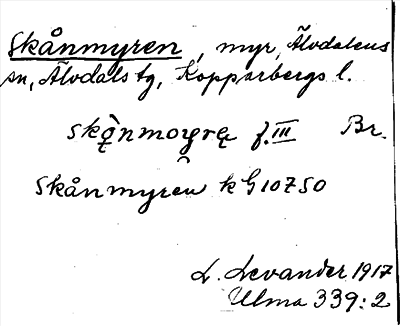 Skånmyren, myr, Älvdalens
sn, Älvdals tg, Kopparbergs l.
f. III Br.
Skånmyren k G 10750
L. Levander 1917
Ulma 339:2